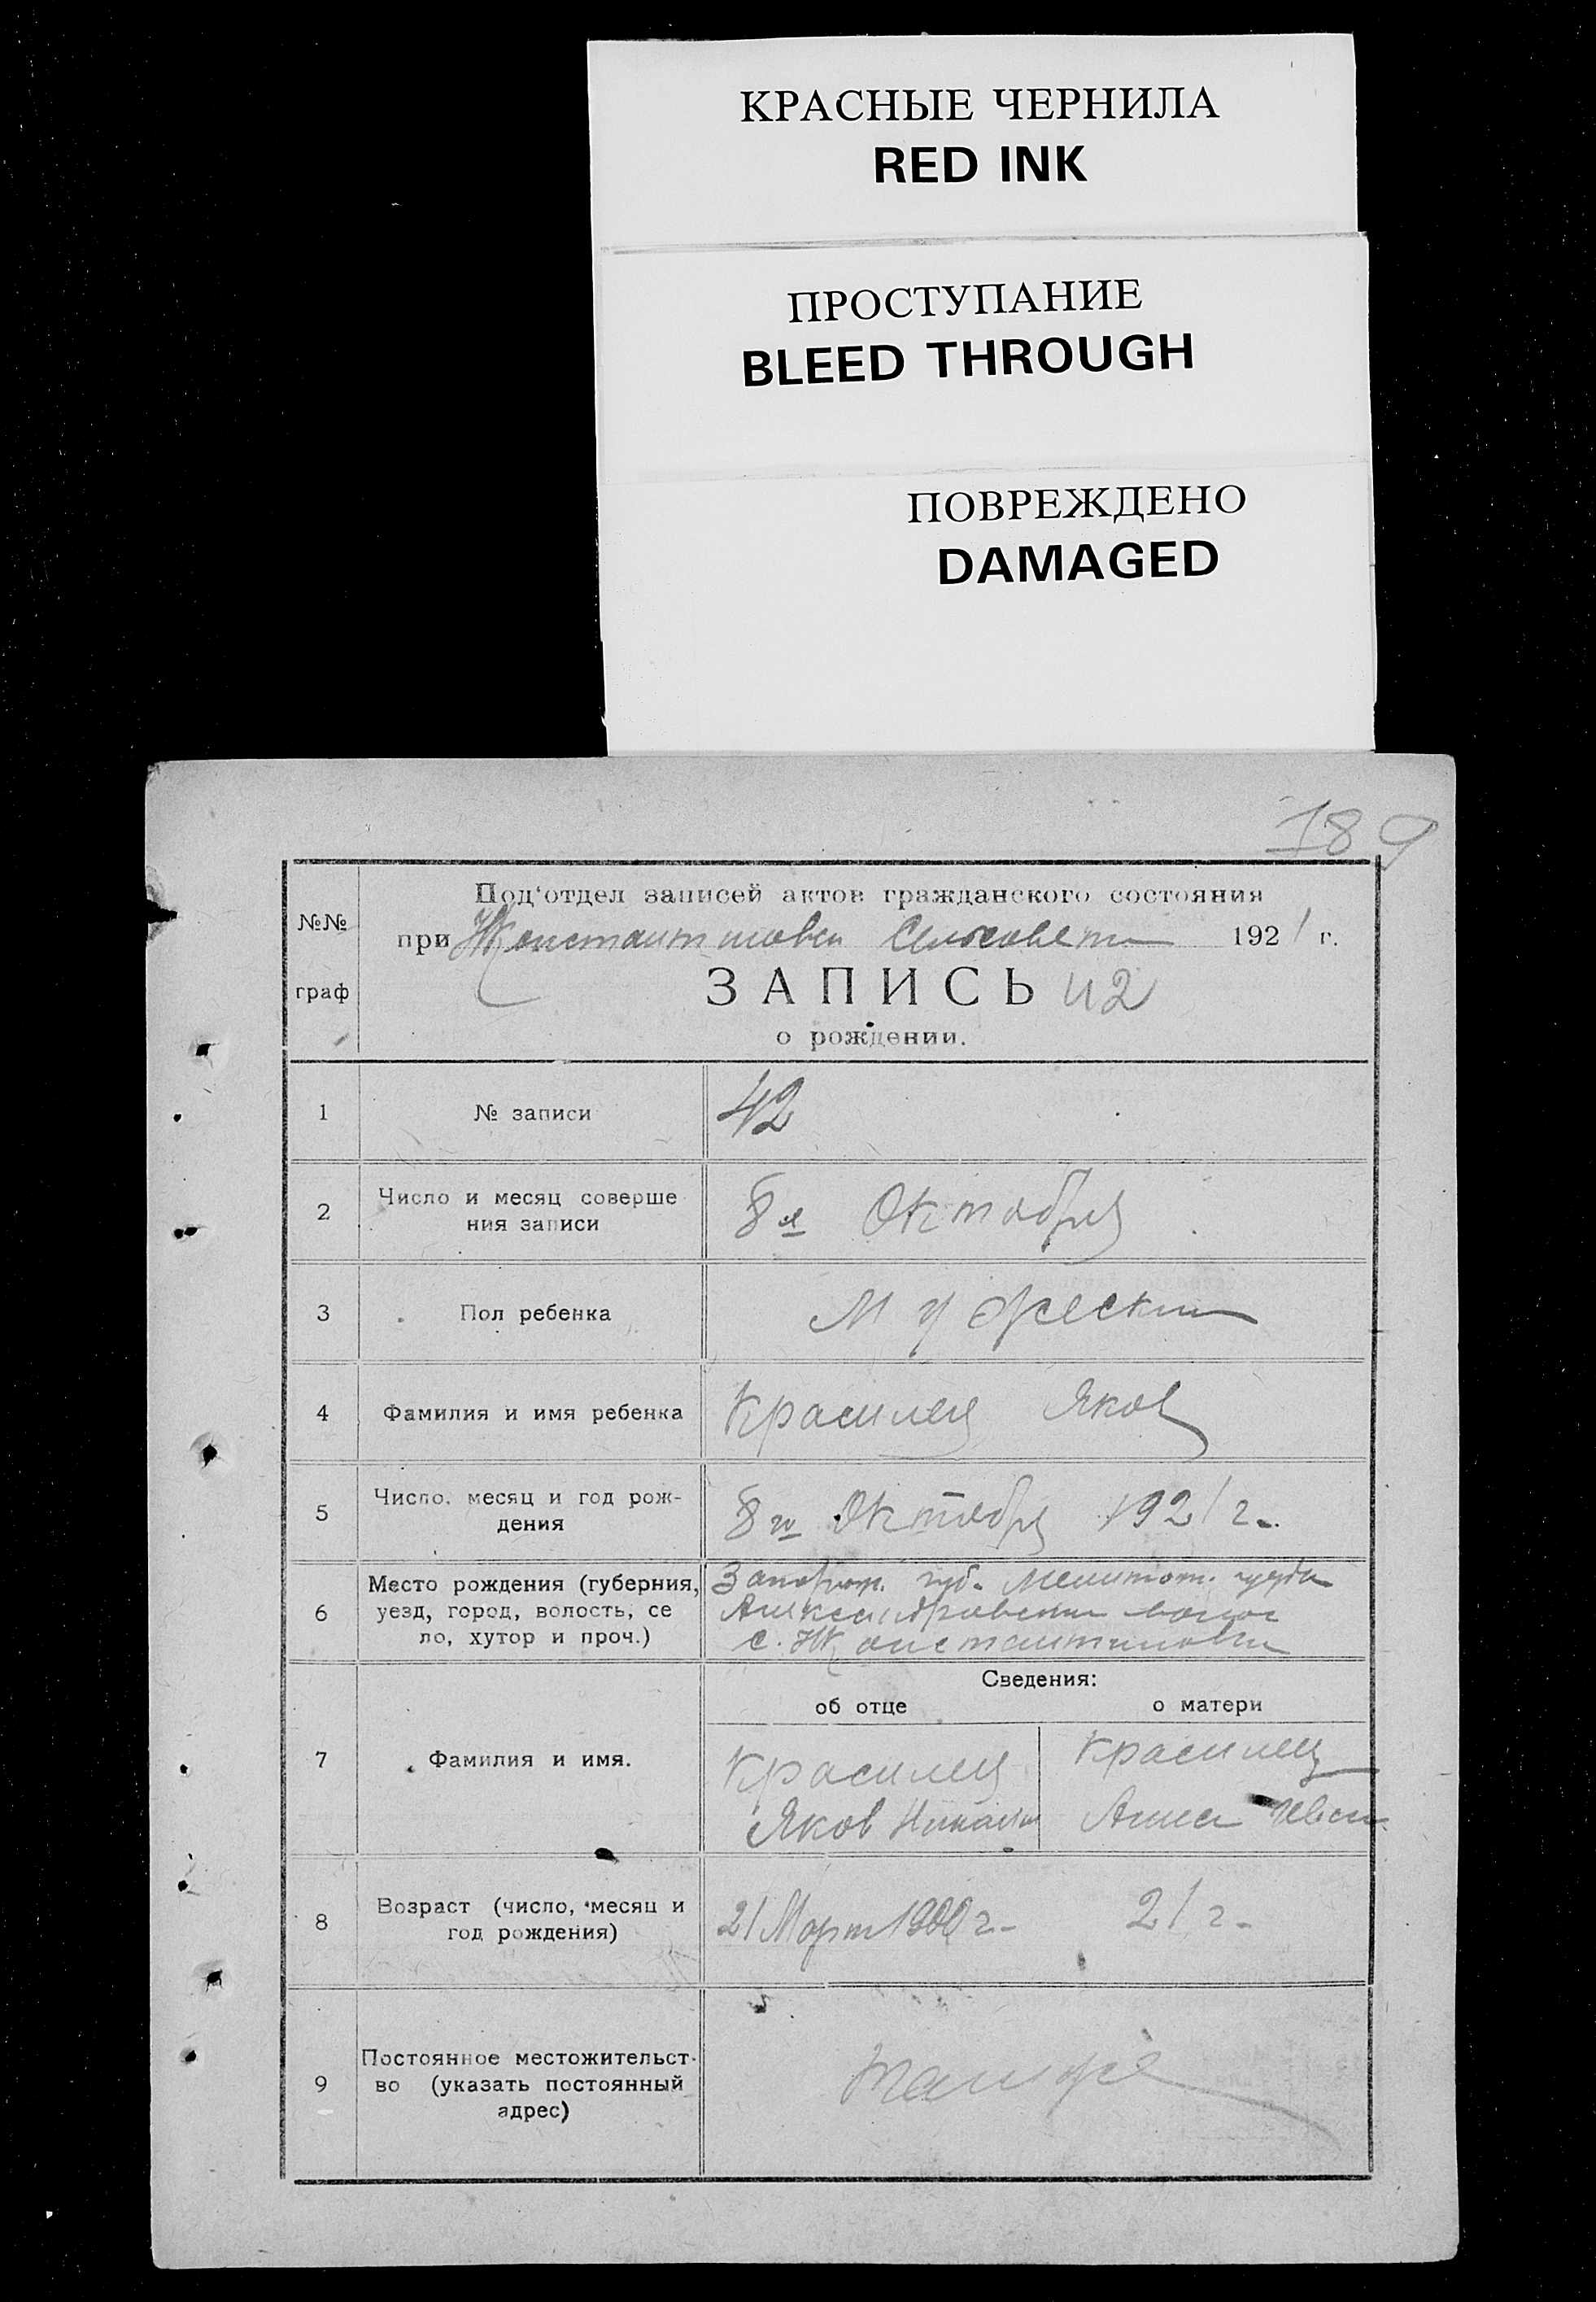 КРАСНЫЕ ЧЕРНИЛА
RED INK
ПРОСТУПАНИЕ
BLEED THROUGH
ПОВРЕЖДЕНО
DAMAGED
189
№№ граф
Под'отдел записей актов гражданского состояния
при 1921 г.
ЗАПИСЬ 42
о рождении.
1 № записи 42
2 Число и месяц соверше
ния записи 8го Октября
3 Пол ребенка Мужеский
4 Фамилия и имя ребенка Красилец Яков
5 Число, месяц и год рож-
дения 8го Октября 1921 г.
6 Место рождения (губерния,
уезд, город, волость, се
ло, хутор и проч.)
губ. Мелитоп. уезда
волос
с. Константиновка
Сведения:
об отце о матери
7 Фамилия и имя.
Красилец
Яков
Красилец
Анна Иван.
8 Возраст (число, месяц и
год рождения)
21 Март 1900 г. 21 г.
9 Постоянное местожительст-
во (указать постоянный
адрес)
там же